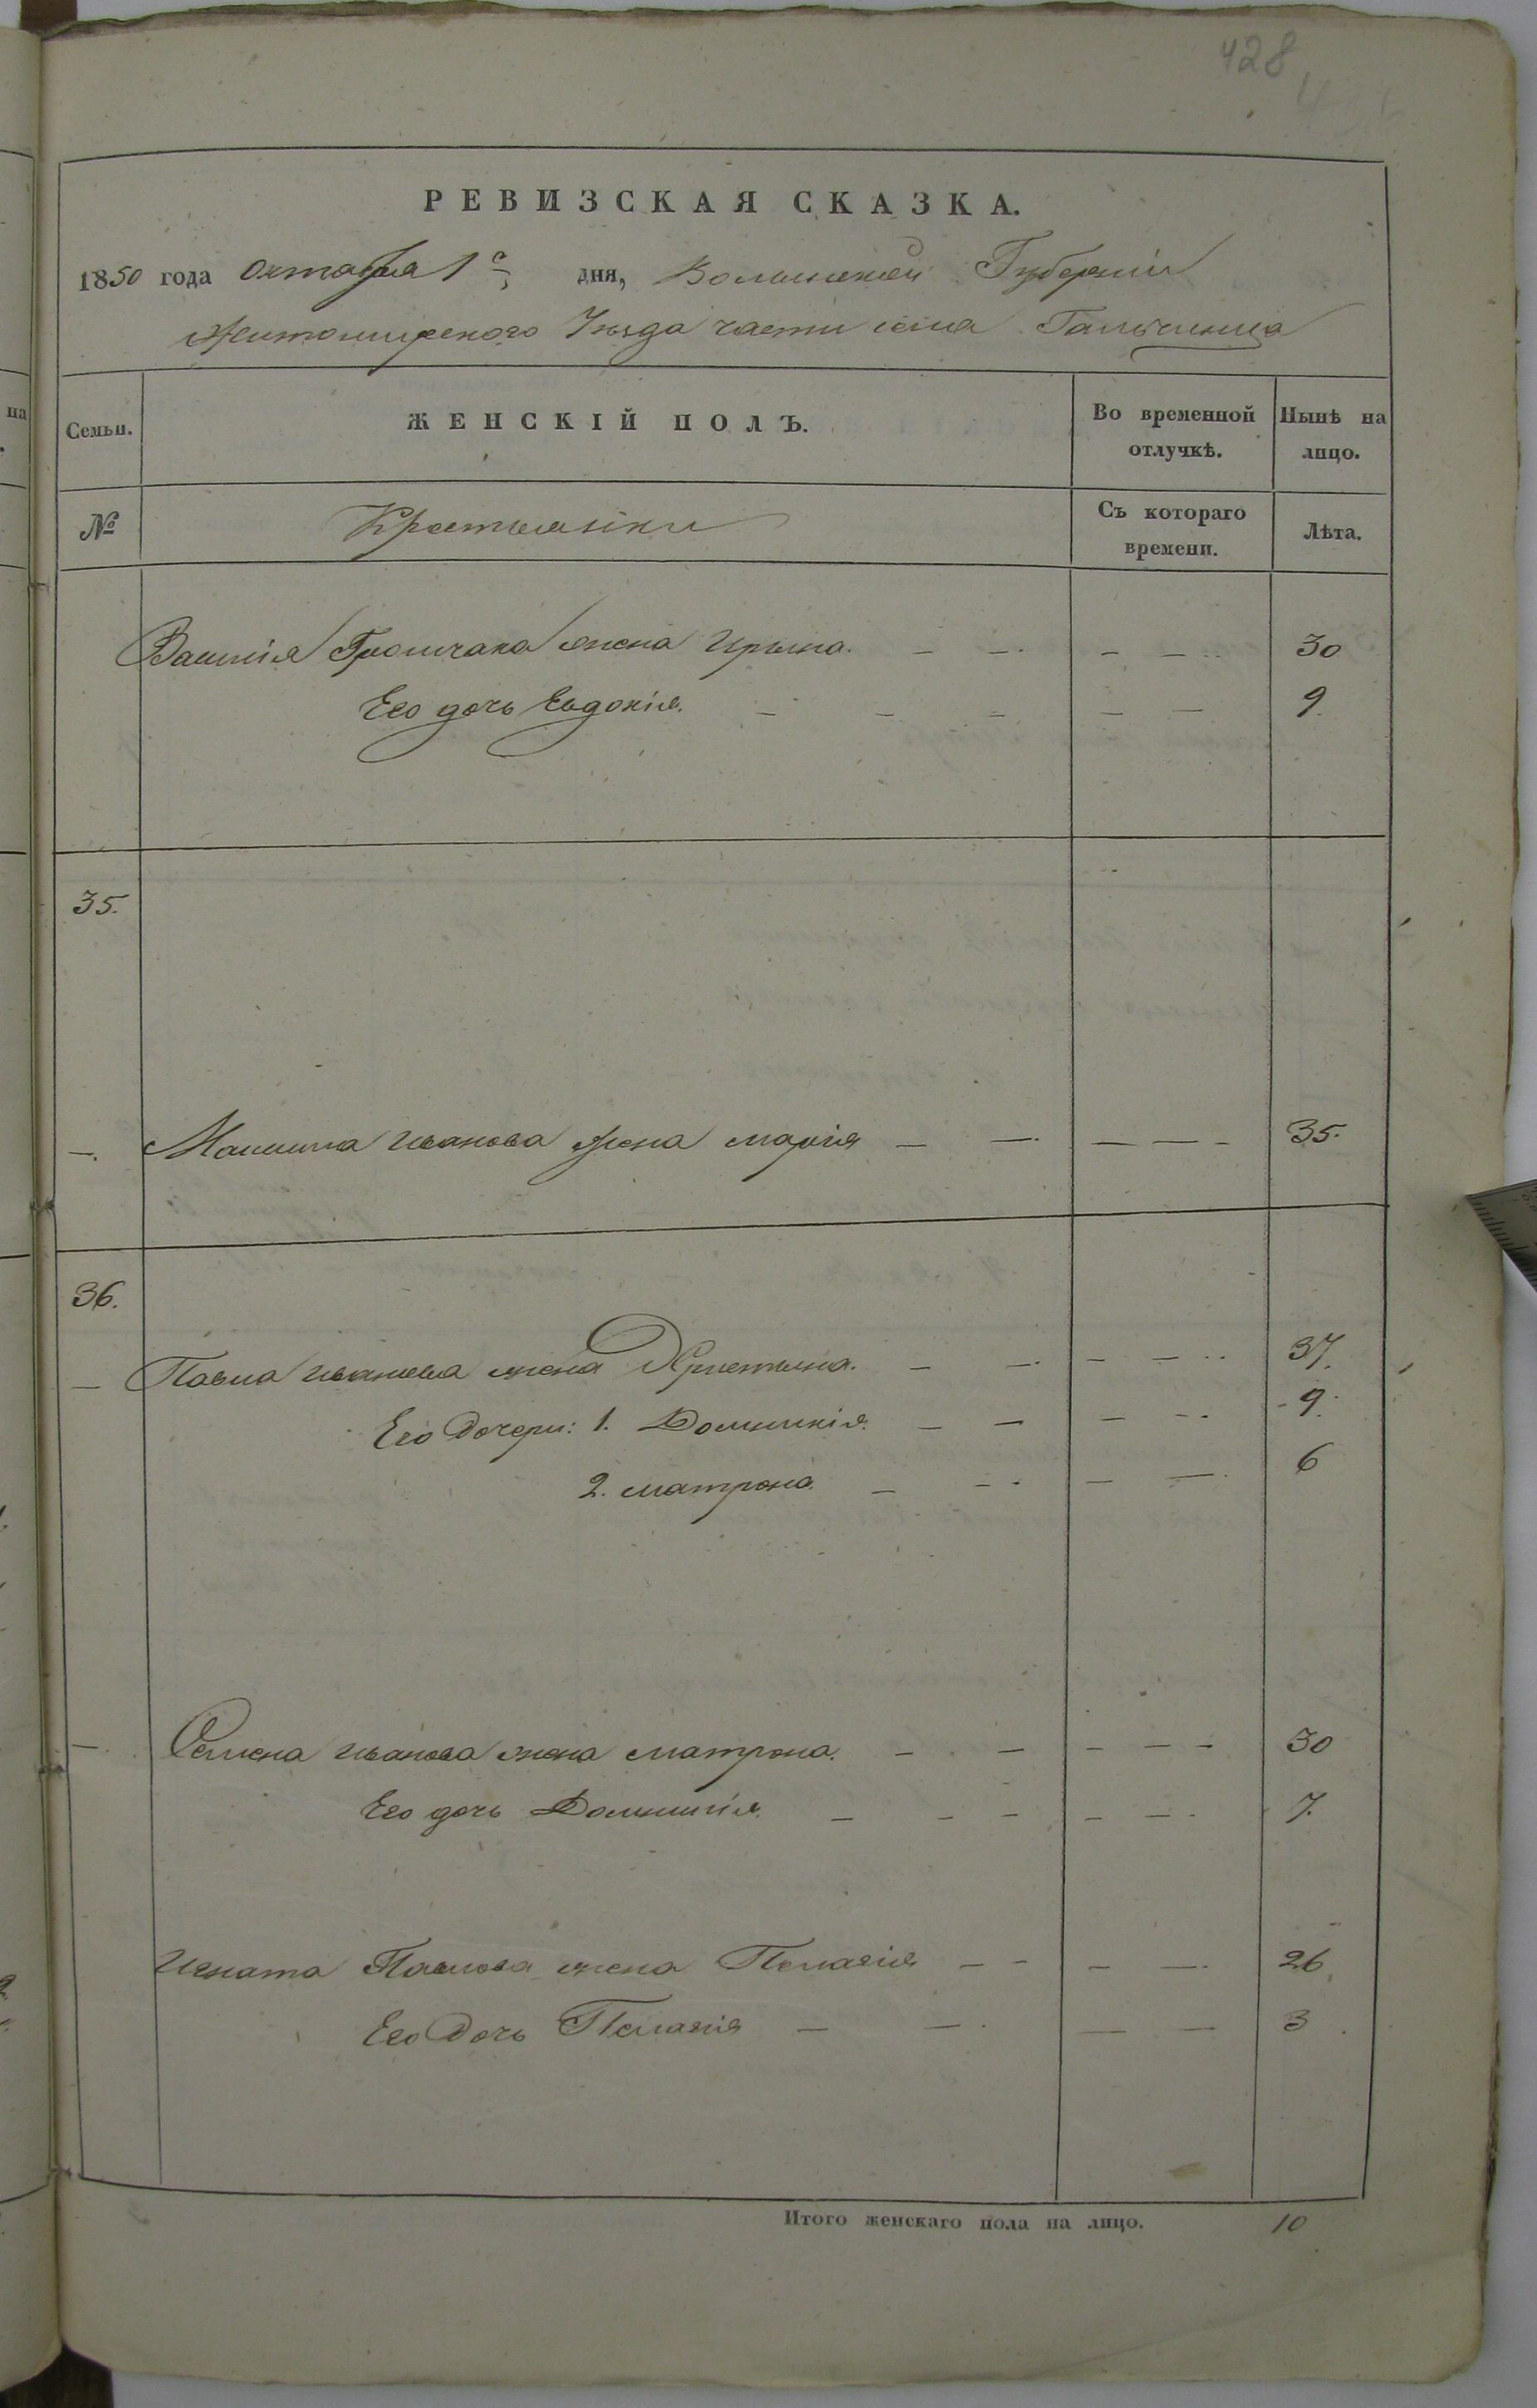 428
РЕВИЗСКАЯ СКАЗКА.
1850 года Октября 1го дня, Волынской Губерніи
Житомирского Уезда части села Гальчинца
Семьи. ЖЕНСКІЙ ПОЛЪ. Во временной отлучкѣ. Нынѣ на лицо.
№ Крестьянки Съ котораго времени. Лѣта.
Василія жена Ирына. — — — — 30
Его дочь Евдокія. — — — — — 9.
35.
—. Максима Иванова жена Марія — — — — — 35.
36.
— Павла Иванова жена Христына. — — — — 37.
Его Дочери: 1. Домникія. — — — — 9.
2. Матрона. — — — — 6
—. Семена Иванова жена Матрона. — — — — — 30
Его дочь Домникія. — — — — — 7.
Игната Павлова жена Пелагія — — — — 26.
Его Дочь Пелагія — — — — 3.
Итого женскаго пола на лицо. 10